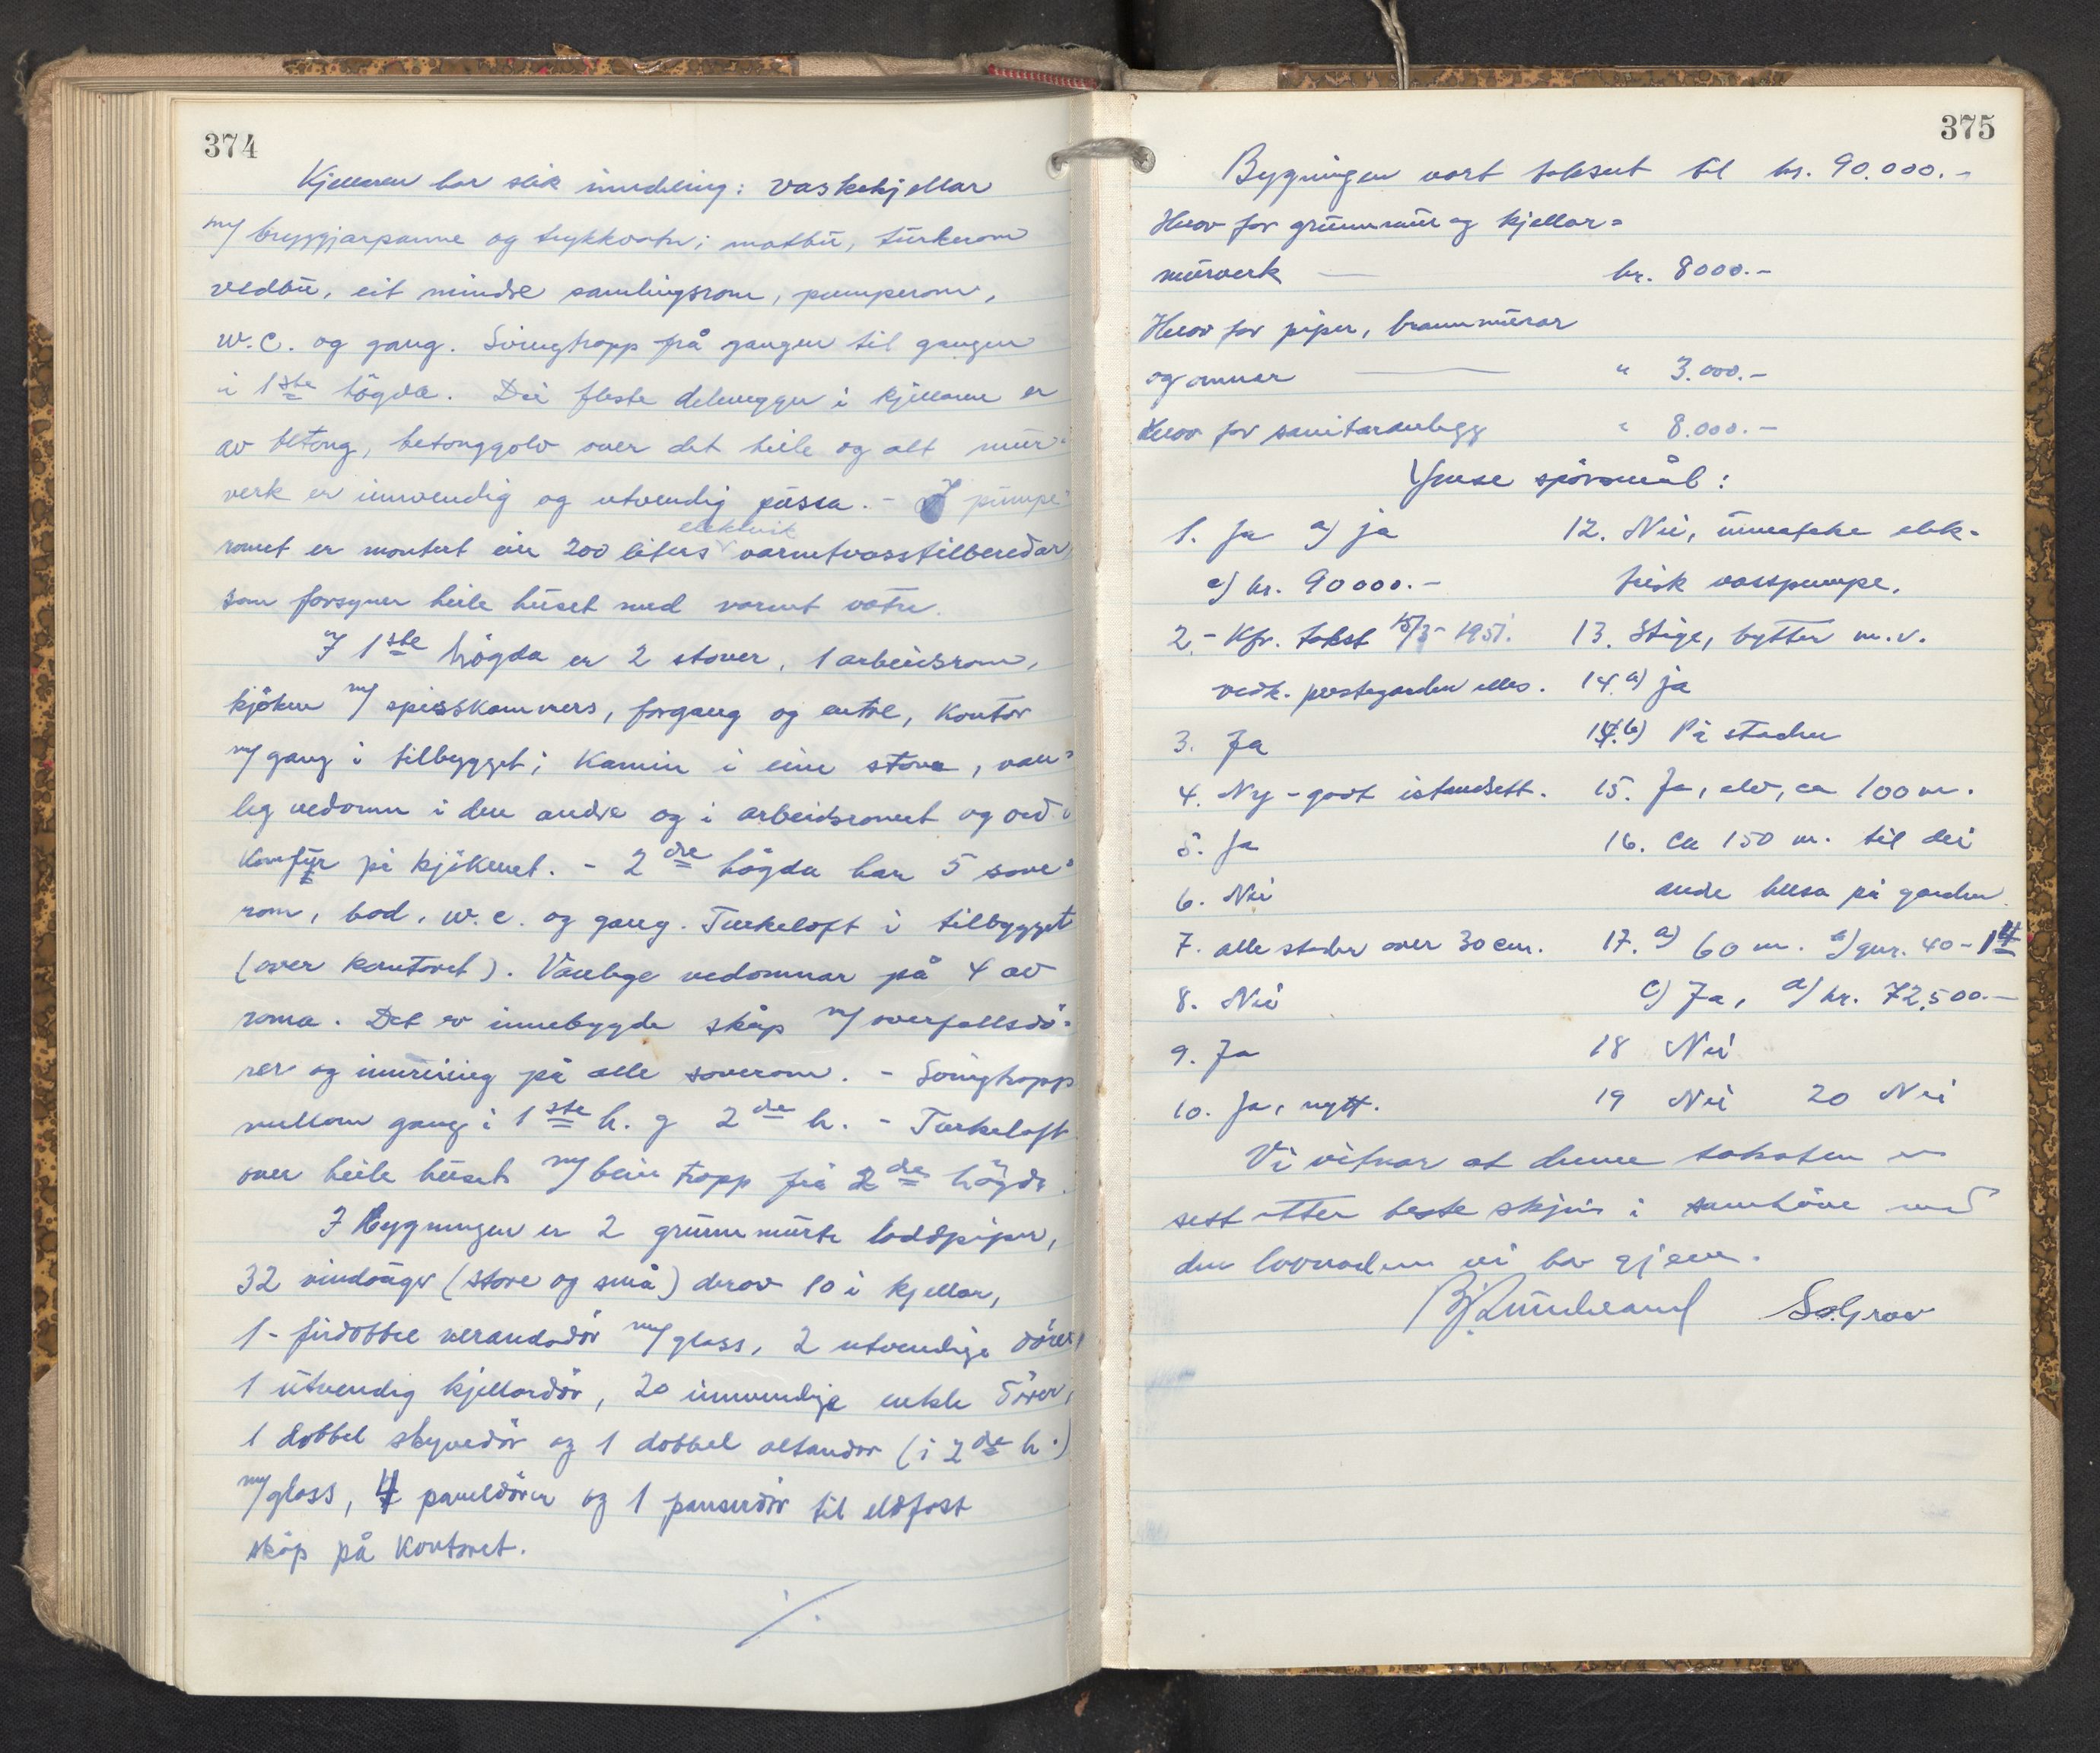 374
Kjellaren har slik inndeling: vaskekjellar
m/ bryggjarpanne og trykkvatn; matbu, turkerom
vedbu, eit mindre samlingsrom, pumperom,
w.c. og gang. Svingtropp på gangen til gangen
i 1ste högda. Dei fleste delevegger i kjellaren er
av betong, betonggolv over det heile og alt mur-
verk er innvendig og utvendig pussa. - I pumpe-
elektrisk
romet er montert ein 200 liters varmtvasstilberedar,
som forsyner heile huset med varmt vatn.
I 1ste högda er 2 stover, 1 arbeidsrom,
kjöken m/ spisskammers, forgang og entre, kontor
m/ gang i tilbygget; Kamin i eine stova, van-
leg vedomn i den andre og i arbeidsromet og ved-
komfyr på kjökenet. - 2dre högda har 5 sove-
rom, bod, w.c. og gang. Turkeloft i tilbygget
(over kontoret). Vanlege vedomnar på 4 av
roma. Det er innebygde skåp m/ overfallsdö-
rer og innreiing på alle soverom. - Svingtropp
mellom gang i 1ste h. og 2dre h. - Turkeloft
over heile huset m/ bein tropp frå 2dre högda.
I bygningen er 2 grunnmurte loddpiper,
32 vindauger (store og små) derav 10 i kjellar,
1 - firdobbel verandadör m/ glass, 2 utvendige dörer,
1 utvendig kjellardör, 20 innvendige enkle dörer,
1 dobbel skyvedör og 1 dobbel altandör (i 2dre h.)
m/ glass, 4 paneldörer og 1 panserdör til eldfast
skåp på kontoret.
./.
375
Bygningen vart taksert til kr. 90.000.-
Herav for grunnmur og kjellar-
murverk — kr. 8000.-
Herav for piper, brannmurar
og omnar — " 3.000.-
Herav for sanitæranlegg " 8.000.-
Ymse spörsmål:
1. Ja a) ja
c) kr. 90000.-
2.- Kfr. takst 15/3- 1951.
vedk. prestegarden elles.
3. Ja
4. Ny - godt istandsett.
5. Ja
6. Nei
7. alle stader over 30 cm.
8. Nei
9. Ja
10. Ja, nytt.
12. Nei, unnateke elek-
trisk vasspumpe.
13. Stige, bytter m.v.
14. a) ja
14. b) På staden
15. Ja, elv, ca 100 m.
16. Ca 150 m. til dei
andre husa på garden.
17. a) 60 m. b) gnr. 40 - 14
c) Ja, d) kr. 72.500.-
18 Nei
19 Nei 20 Nei
Vi vitnar at denne taksten er
sett etter beste skjön i samhöve med
den lovnaden vi har gjeve.
S.Grov